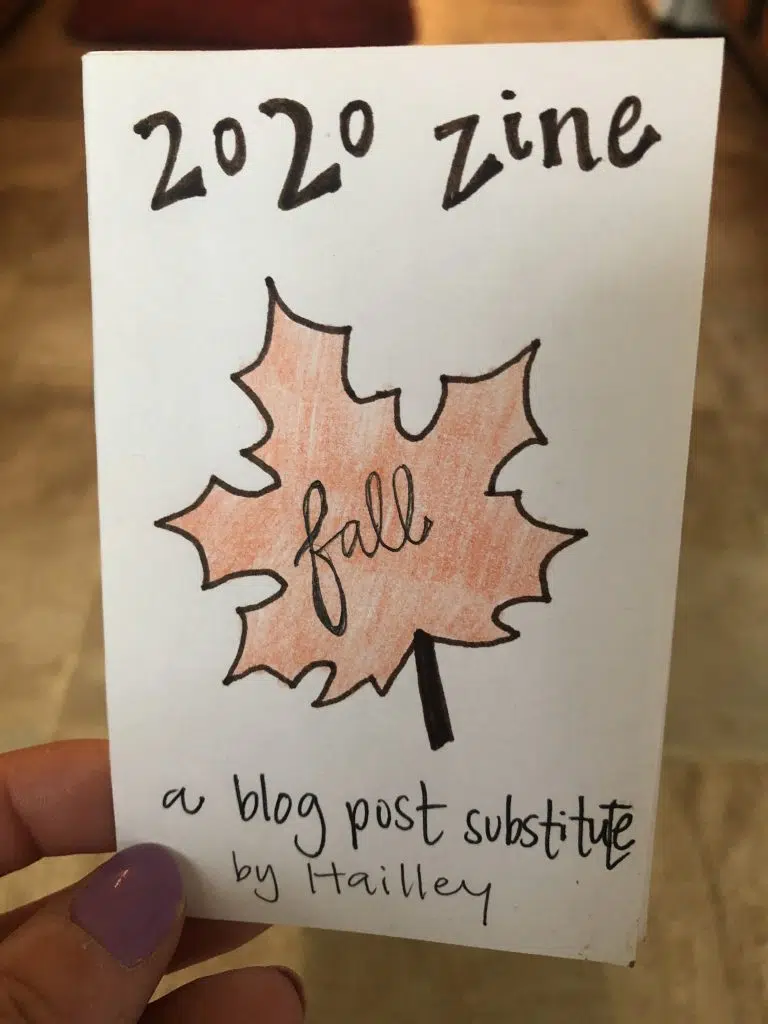 2020 zine
fall
a blog post substitute
by Hailley